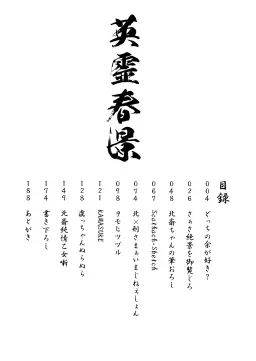 英霊春景
目録
004 どっちの余が好き？
026 さぁさ絶景を御覧じろ
048 北斎ちゃんの筆おろし
067 Scathach-Sketch
074 北×刑さまぁいまじねぇしょん
098 ヲモヒツヅル
121 KAMASUKE
128 虞っちゃんぬらぬら
149 北斎純情乙女噺
174 書き下ろし
188 あとがき